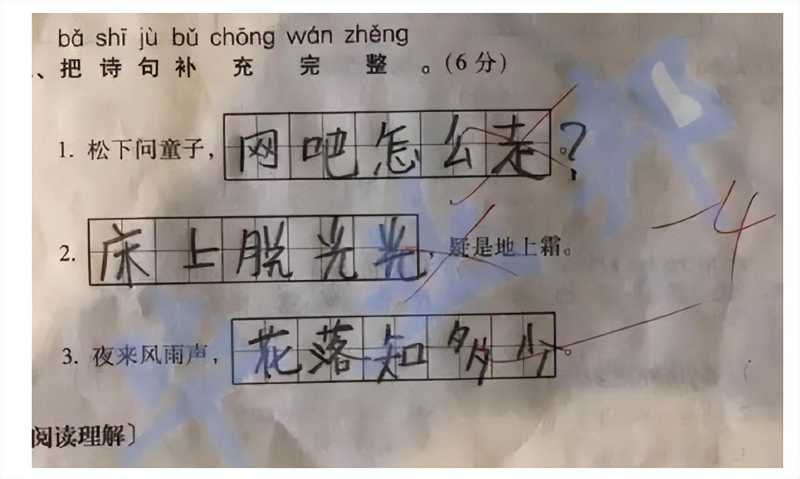 bǎ shī jù bǔ chōng wán zhěng
、把诗句补充完整。(6分)
1. 松下问童子,网吧怎么走。?
2. 床上脱光光,疑是地上霜。
-4
3. 夜来风雨声,花落知多少。
阅读理解〕